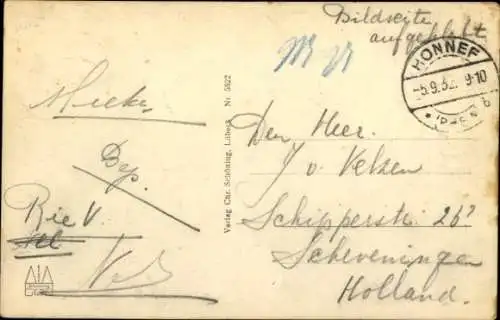 Bildseite
aufgeklebt
HONNEF
-5.9.32. 9-10
b
Mieke
Dep.
Rie V.
Verlag Chr. Schöning, Lübeck Nr. 5822
Den Heer.
J v. Velzen
Schipperstr. 26
Scheveningen
Holland.